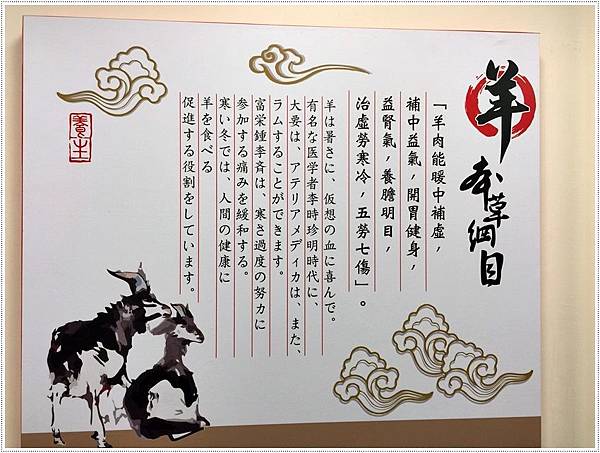 羊
本草綱目
「羊肉能暖中補虛，
補中益氣，開胃健身，
益腎氣，養膽明目，
治虛勞寒冷，五勞七傷」。
羊は暑さに、仮想の血に喜んで。
有名な医学者李時珍明時代に、
大要は、アテリアメディカは、また、
ラムすることができます。
富栄鍾李斉は、寒さ過度の努力に
参加する痛みを緩和する。
寒い冬では、人間の健康に
羊を食べる
促進する役割をしています。
養生